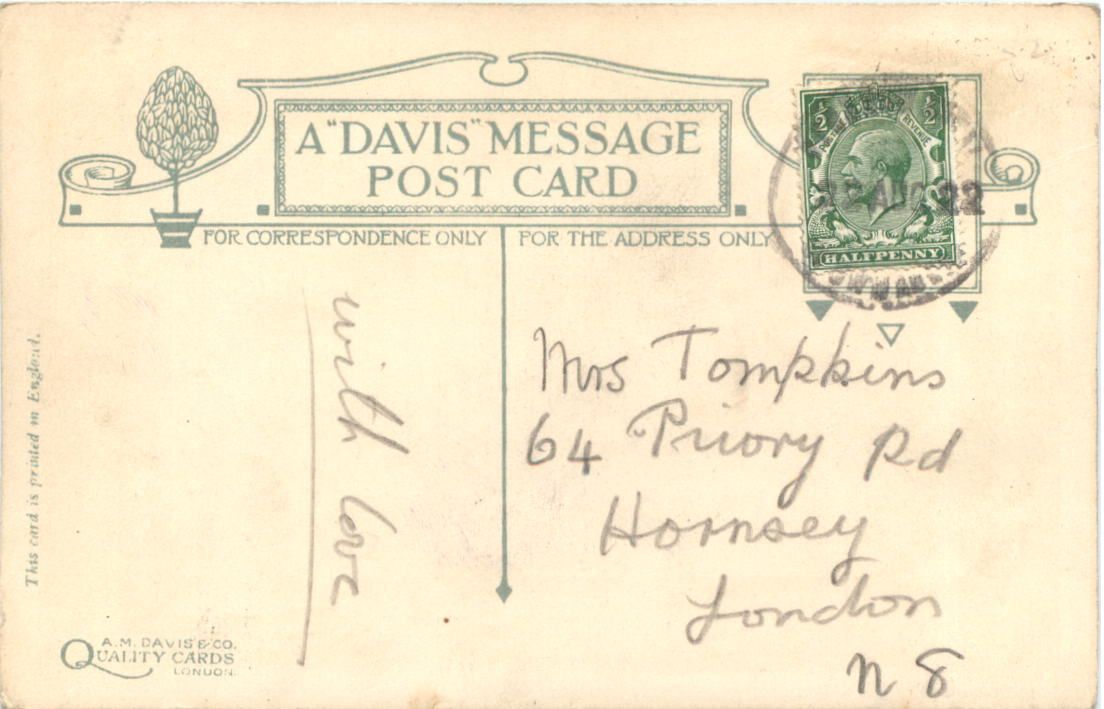 A "DAVIS" MESSAGE
POST CARD
FOR CORRESPONDENCE ONLY
FOR THE ADDRESS ONLY
½ ½
POSTAGE REVENUE
HALFPENNY
AUG 22
with love
Mrs Tompkins
64 Priory Rd
Hornsey
London
N 8
This card is printed in England.
A. M. DAVIS & CO.
QUALITY CARDS
LONDON.